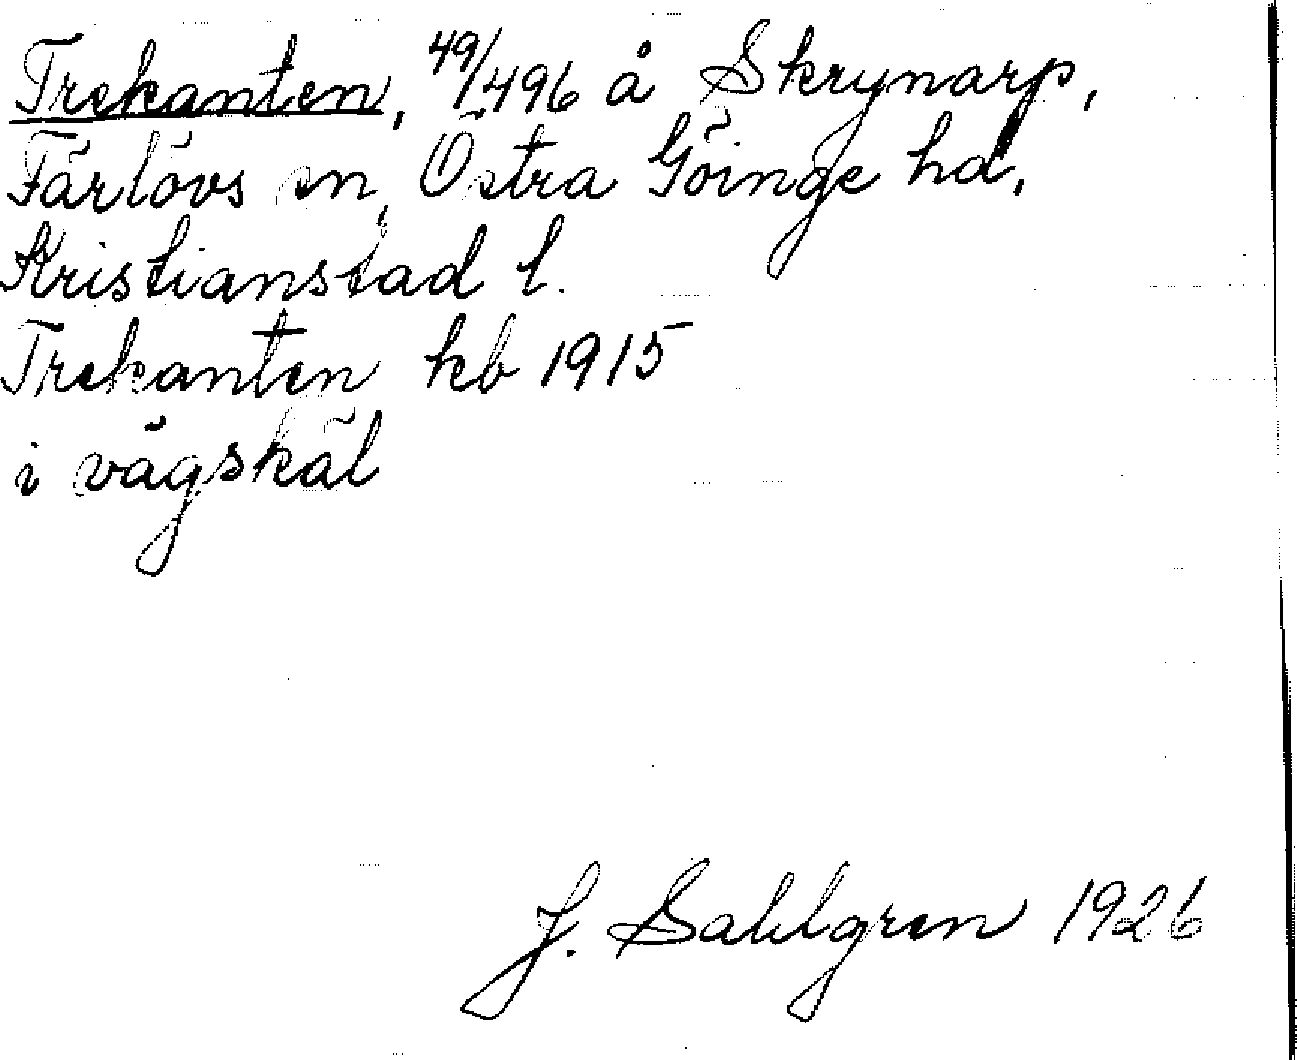 Trekanten, 49/496 å Skrynarp,
Färlövs sn, Östra Göinge hd,
Kristianstad l.
Trekanten kb 1915
i vägskäl
J. Sahlgren 1926